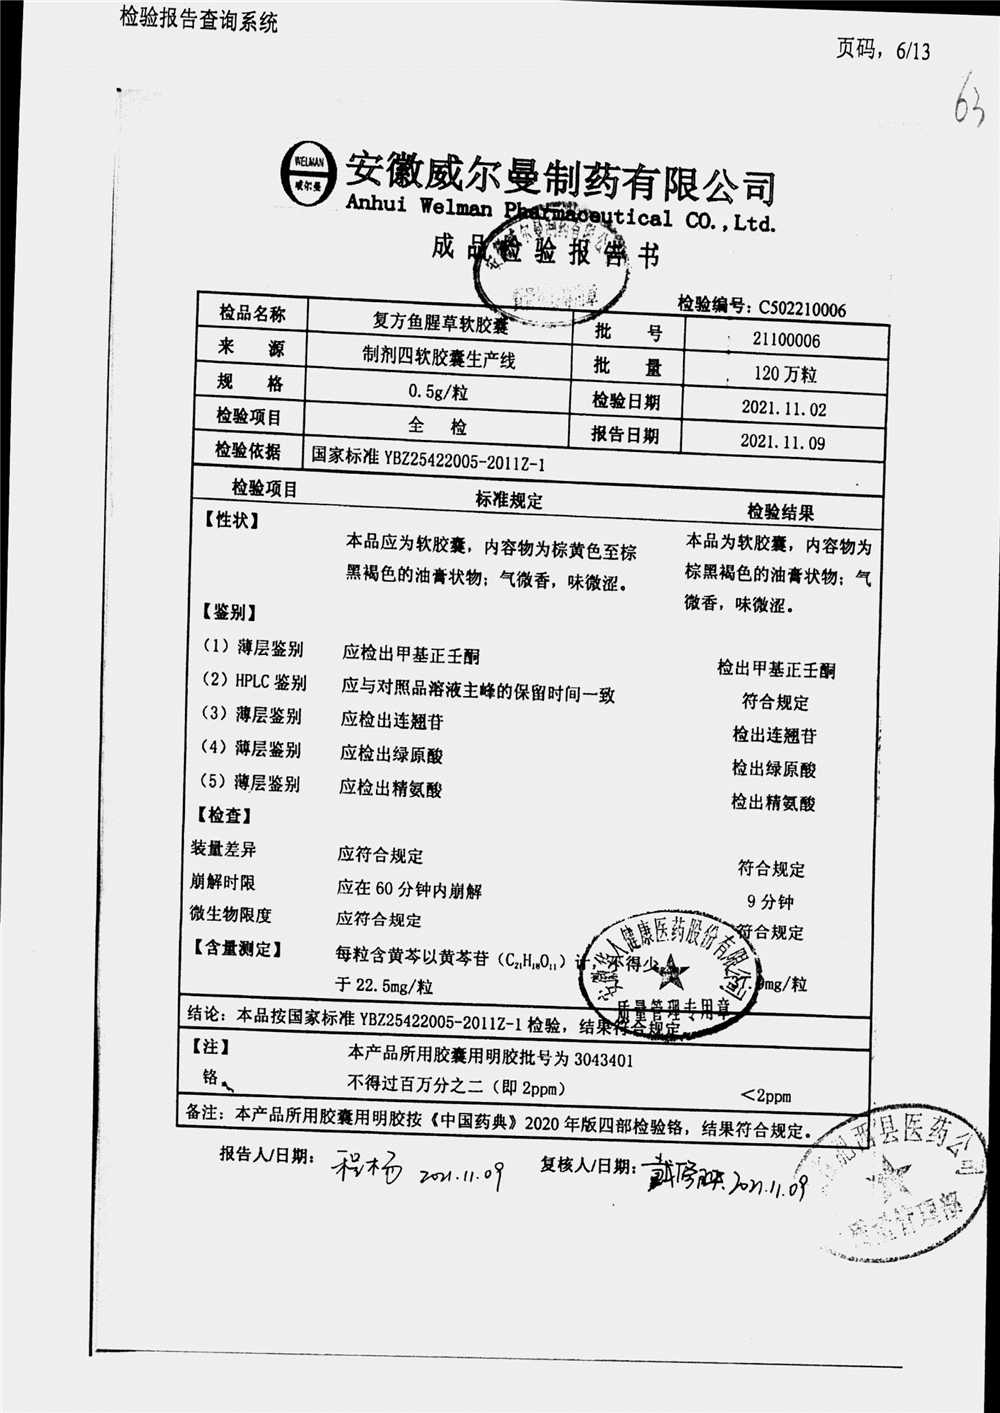 检验报告查询系统
页码，6/13
63
WELMAN
威尔曼
安徽威尔曼制药有限公司
Anhui Welman Pharmaceutical CO.,Ltd.
成品检验报告书
检验编号：C502210006
检品名称 复方鱼腥草软胶囊 批 号 21100006
来 源 制剂四软胶囊生产线 批 量 120万粒
规 格 0.5g/粒 检验日期 2021.11.02
检验项目 全 检 报告日期 2021.11.09
检验依据 国家标准YBZ25422005-2011Z-1
检验项目 标准规定 检验结果
【性状】 本品应为软胶囊，内容物为棕黄色至棕 本品为软胶囊，内容物为
黑褐色的油膏状物；气微香，味微涩。 棕黑褐色的油膏状物；气
微香，味微涩。
【鉴别】
（1）薄层鉴别 应检出甲基正壬酮 检出甲基正壬酮
（2）HPLC鉴别 应与对照品溶液主峰的保留时间一致 符合规定
（3）薄层鉴别 应检出连翘苷 检出连翘苷
（4）薄层鉴别 应检出绿原酸 检出绿原酸
（5）薄层鉴别 应检出精氨酸 检出精氨酸
【检查】
装量差异 应符合规定 符合规定
崩解时限 应在60分钟内崩解 9分钟
微生物限度 应符合规定 符合规定
【含量测定】 每粒含黄芩以黄芩苷（C₂₁H₁₈O₁₁）计，不得少
于22.5mg/粒 mg/粒
安徽华人健康医药股份有限公司
质量管理专用章
结论：本品按国家标准YBZ25422005-2011Z-1检验，结果符合规定。
【注】 本产品所用胶囊用明胶批号为3043401
铬 不得过百万分之二（即2ppm） <2ppm
备注：本产品所用胶囊用明胶按《中国药典》2020年版四部检验铬，结果符合规定。
报告人/日期： 程杨 2021.11.09 复核人/日期： 2021.11.09
肥西县医药公司
质量管理部